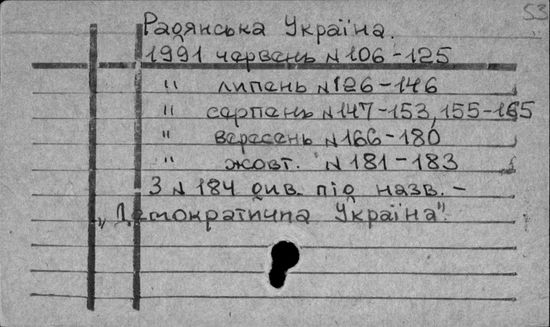 53
Радянська Україна.
1991 червень N106-125
" липень N126-146
" серпень N147-153, 155-165
" вересень N166-180
" жовт. N181-183
З N 184 див. під назв. -
"Демократична Україна".